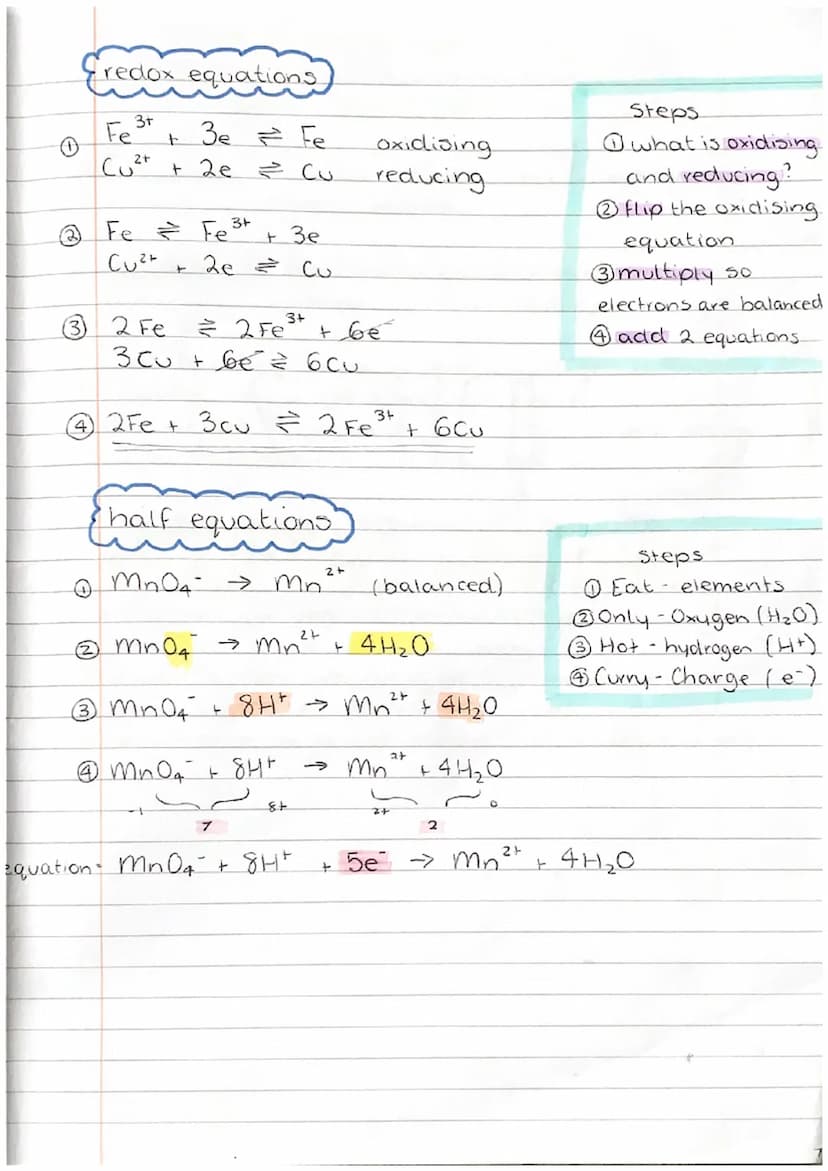 redox equations
① Fe³⁺ + 3e ⇌ Fe oxidising
Cu²⁺ + 2e ⇌ Cu reducing
② Fe ⇌ Fe³⁺ + 3e
Cu²⁺ + 2e ⇌ Cu
③ 2Fe ⇌ 2Fe³⁺ + 6e⁻
3Cu + 6e⁻ ⇌ 6Cu
④ 2Fe + 3Cu ⇌ 2Fe³⁺ + 6Cu
Steps
① what is oxidising
and reducing?
② flip the oxidising
equation
③ multiply so
electrons are balanced
④ add 2 equations
half equations
① MnO₄⁻ → Mn²⁺ (balanced)
② MnO₄⁻ → Mn²⁺ + 4H₂O
③ MnO₄⁻ + 8H⁺ → Mn²⁺ + 4H₂O
④ MnO₄⁻ + 8H⁺ → Mn²⁺ + 4H₂O
-1 8+ 2+ 0
7 2
equation = MnO₄⁻ + 8H⁺ + 5e⁻ → Mn²⁺ + 4H₂O
Steps
① Eat - elements
② Only - Oxygen (H₂O)
③ Hot - hydrogen (H⁺)
④ Curry - Charge (e⁻)